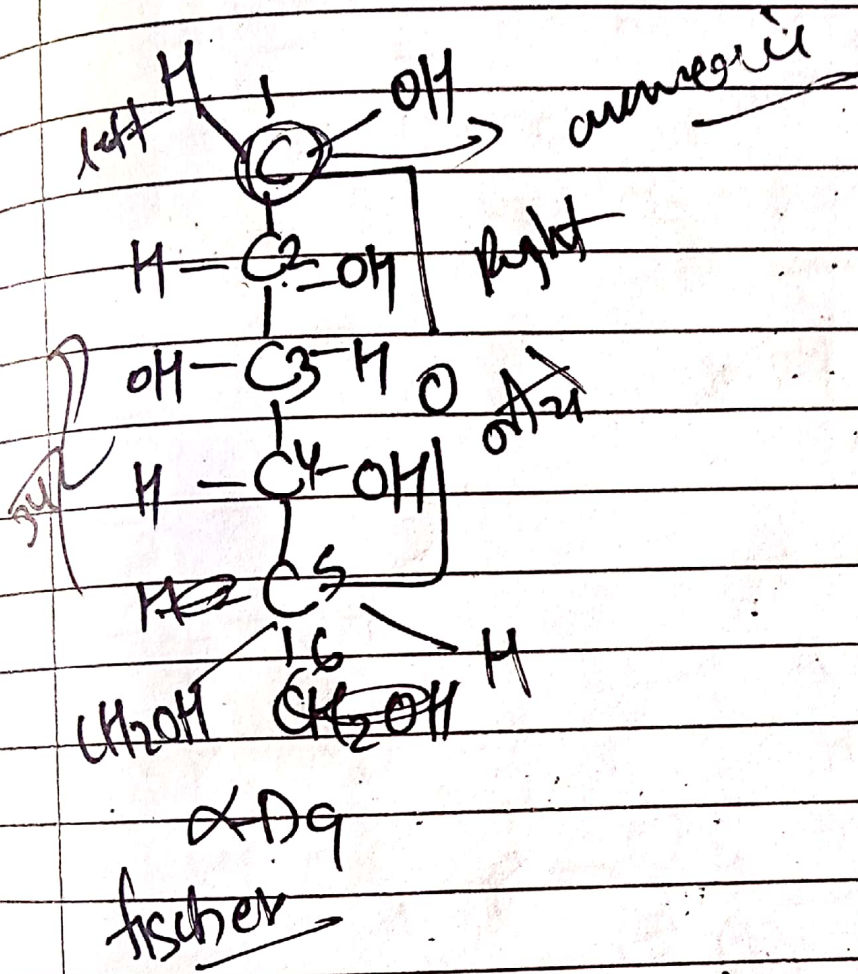 H 1 OH anomeric
left C
H - C2 - OH Right
OH - C3 - H
O
H - C4 - OH
C5
6 H
CH2OH CH2OH
α-DG
fischer